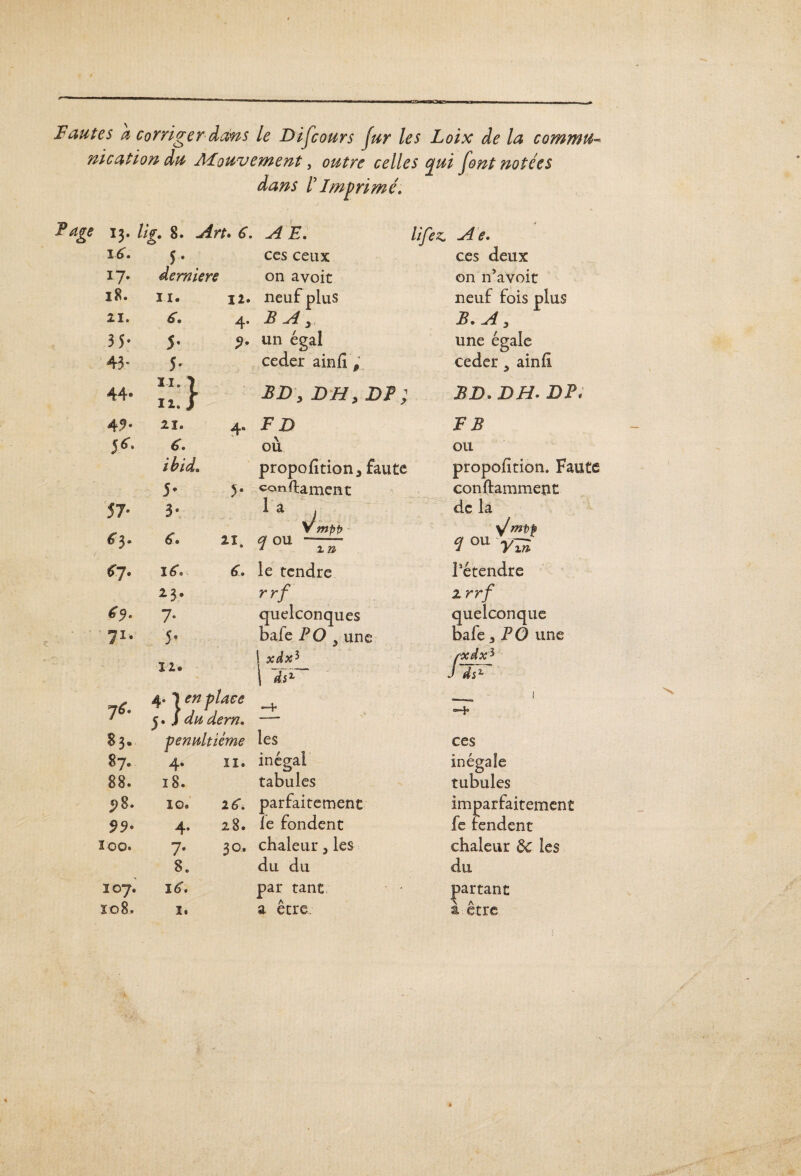 Fautes à corriger dans le Difcours fur les Loix de la commu-
nication du Mouvement, outre celles qui font notées
dans l'Imprimé.
Page 13. lig. 8. Art. 6. A E. lifez A e.
16. 5. ces ceux ces deux
17. derniere on avoit on n'avoit
18. 11. 12. neuf plus neuf fois plus
21. 6. 4. B A, B. A,
35. 5. 9. un égal une égale
43. 5. ceder ainfi, ceder, ainfi
44. 11. 12. } BD, DH, DP; BD. DH. DP.
49. 21. 4. F D F B
56. 6. où ou
ibid. propofition, faute propofition. Faute
5. 5. conftament conftamment
57. 3. l a de la
63. 6. 21. q ou √mpp / 2n q ou √mpp / √2n
67. 16. 6. le tendre l'étendre
23. rrf 2rrf
69. 7. quelconques quelconque
71. 5. bafe PO, une bafe, PO une
12. | xdx³ / ds² ∫xdx³ / ds²
76. 4. 5. } en place du dern. -+ — — -+
83. penultiéme les ces
87. 4. 11. inégal inégale
88. 18. tabules tubules
98. 10. 26. parfaitement imparfaitement
99. 4. 28. fe fondent fe fendent
100. 7. 30. chaleur, les chaleur & les
8. du du du
107. 16. par tant partant
108. 1. a être à être